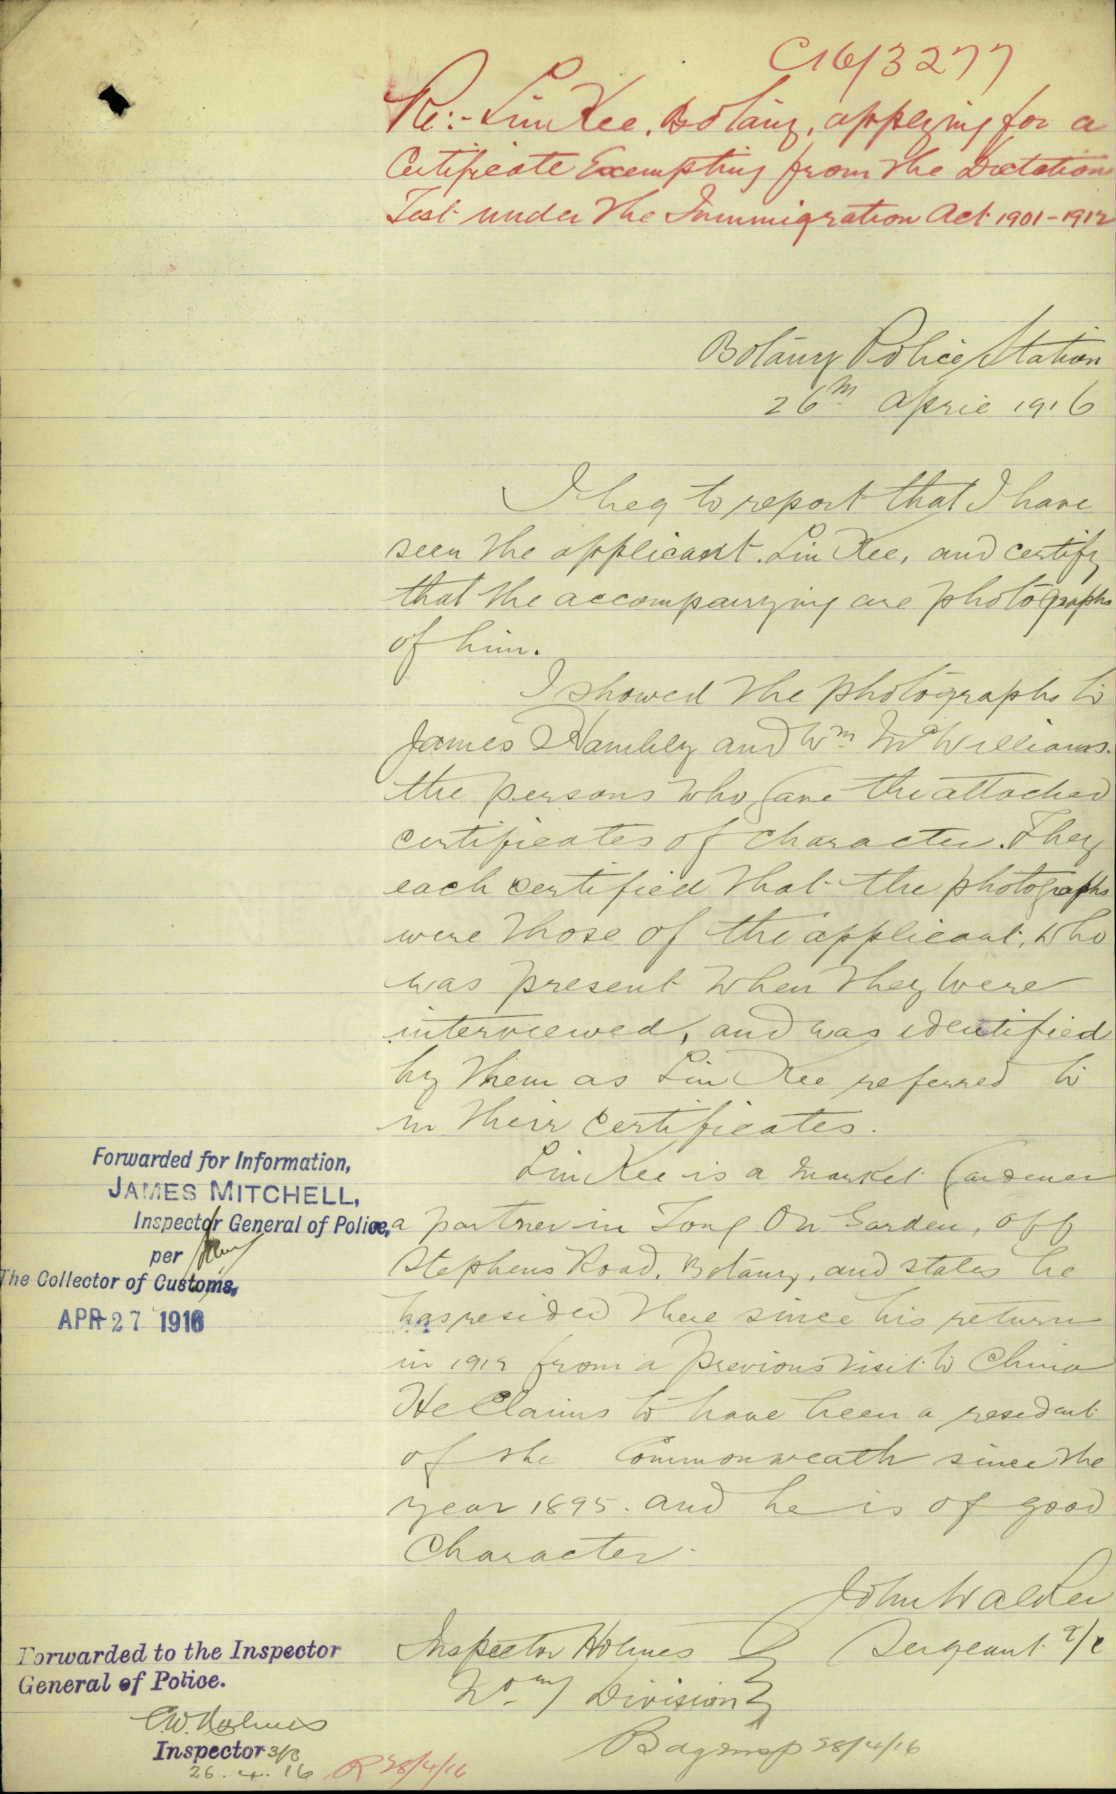 C16/3277
Re:- Lin Kee, Botany, applying for a
Certificate Exempting from the Dictation
Test under the Immigration Act 1901-1912
Botany Police Station
26th April 1916
I beg to report that I have
seen the applicant Lin Kee, and certify
that the accompanying are photographs
of him.
I showed the photographs to
James Hambly and Wm McWilliams.
the persons who gave the attached
certificates of character. They
each certified that the photographs
were those of the applicant, who
was present when they were
interviewed, and was identified
by them as Lin Kee referred to
in their certificates.
Lin Kee is a Market Gardener
a partner in Tong On Garden, off
Stephens Road, Botany, and states he
has resided there since his return
in 1912 from a previous visit to China
He Claims to have been a resident
of the Commonweath since the
year 1895. and he is of good
Character.
John Walker
Sergeant
Inspector Holmes
Division
28/4/16
Forwarded for Information,
JAMES MITCHELL,
Inspector General of Police,
per
The Collector of Customs,
APR 27 1916
Forwarded to the Inspector
General of Police.
C.W. Holmes
Inspector
26.4.16
28/4/16